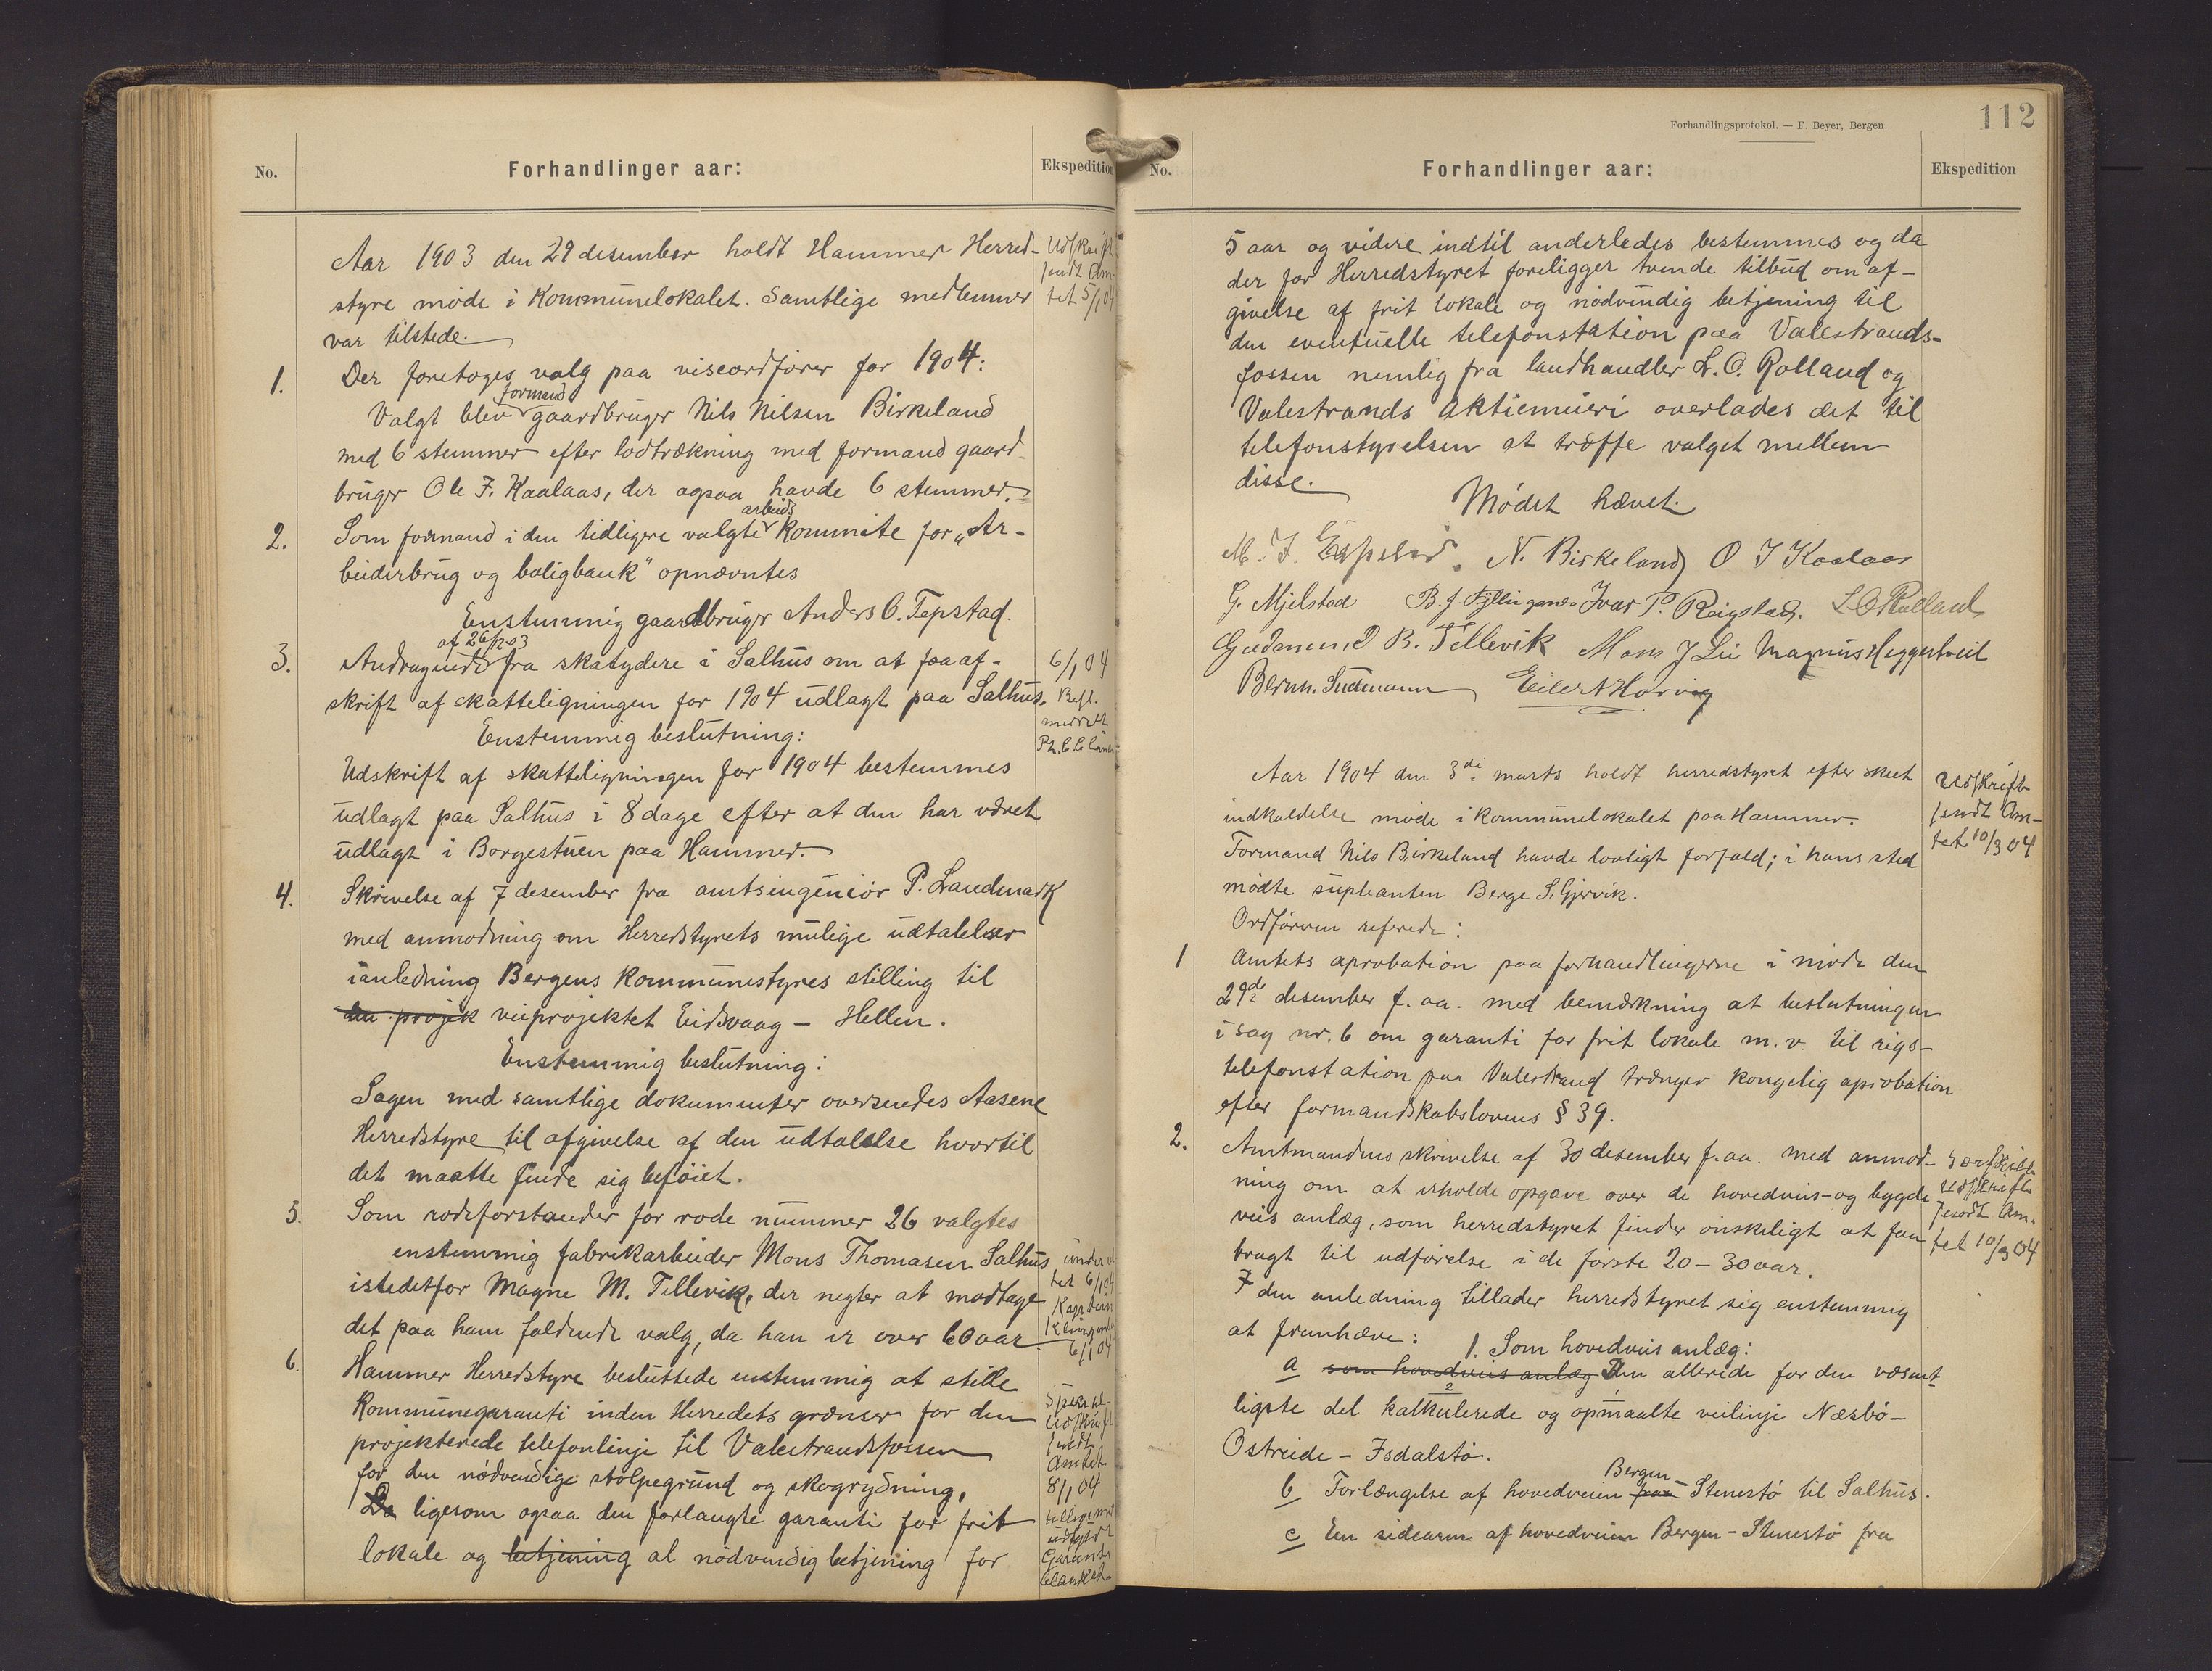 No.
Forhandlinger aar:
Ekspedition
Aar 1903 den 29 desember holdt Hammer Herred-
styre møde i Kommunelokalet. Samtlige medlemmer
var tilstede.
Udskrift
sendt Am-
tet 5/1 04
1. Der foretoges valg paa viseordfører for 1904:
Valgt blev formand gaardbruger Nils Nilsen Birkeland
med 6 stemmer efter lodtrækning med formand gaard-
bruger Ole J. Kaalaas, der ogsaa havde 6 stemmer.
2. Som formand i den tidligere valgte arbeids kommite for „Ar-
beiderbrug og boligbank" opnævntes
Enstemmig gaardbruger Anders O. Tepstad.
3. Andragende af 26/12 03 fra skatydere i Salhus om at faa af-
skrift af skatteligningen for 1904 udlagt paa Salhus.
Enstemmig beslutning:
Udskrift af skatteligningen for 1904 bestemmes
udlagt paa Salhus i 8 dage efter at den har været
udlagt i Borgestuen paa Hammer.
6/1 04
4. Skrivelse af 7 desember fra amtsingeniør P. Landmark
med anmodning om Herredstyrets mulige udtalelser
ianledning Bergens Kommunestyres stilling til
den projek veiprojektet Eidsvaag - Hellen.
Enstemmig beslutning:
Sagen med samtlige dokumenter oversendes Aasene
Herredstyre til afgivelse af den udtalelse hvortil
det maatte finde sig beføiet.
5. Som rodeforstander for rode nummer 26 valgtes
enstemmig fabrikarbeider Mons Thomasen Salhus
istedetfor Magne M. Tellevik, der negter at modtage
det paa ham faldende valg, da han er over 60 aar.
6/1 04
6/1 04
6. Hammer Herredstyre besluttede enstemmig at stille
Kommunegaranti inden Herredets grænser for den
projekterede telefonlinje til Valestrandsfossen
for den nødvendige stolpegrund og skogrydning,
Da ligesom ogsaa den forlangte garanti for frit
lokale og betjening al nødvendig betjening for
Udskrift
sendt
Amtet
8/1 04
Garanti
blanket
Forhandlingsprotokol. — F. Beyer, Bergen.
112
No.
Forhandlinger aar:
Ekspedition
5 aar og videre indtil anderledes bestemmes og da
der for Herredstyret foreligger tvende tilbud om af-
givelse af frit lokale og nødvendig betjening til
den eventuelle telefonstation paa Valestrands-
fossen nemlig fra landhandler L. O. Rolland og
Valestrands Aktiemeieri overlades det til
telefonstyrelsen at træffe valget mellem
disse.
Mødet hævet.
N. Birkeland O J Kaalaas
G. Mjelstad Ivar P. Reigstad. L O Rolland
Gudmund B. Tellevik Mons J Lie Magnus Heggertveit
Bernh. Sudmann Eilert Horvig
Aar 1904 den 3di marts holdt herredstyret efter skeet
indkaldelse møde i kommunelokalet paa Hammer.
Formand Nils Birkeland havde lovligt forfald; i hans sted
mødte supleanten Berge S. Gjervik.
Udskrift
sendt Am-
tet 10/3 04
Ordføreren referede:
1 Amtets aprobation paa forhandlingerne i møde den
29de desember f. aa. med bemærkning at beslutningen
i sag nr. 6 om garanti for frit lokale m.v. til rigs-
telefonstation paa Valestrand trænger kongelig aprobation
efter formandskabslovens § 39.
2. Amtmandens skrivelse af 30 desember f. aa. med anmod-
ning om at erholde opgave over de hovedveis- og bygde
veis anlæg, som herredstyret finder ønskeligt at faa
bragt til udførelse i de første 20 - 30 aar.
Særskilt
udskrift
sendt Am-
tet 10/3 04
I den anledning tillader herredstyret sig enstemmig
at fremhæve:
1. Som hovedveis anlæg:
a som hovedveis anlæg Den allerede for den væsent-
ligste del kalkulerede og opmaalte veilinje Næsbø-
Ostreide - Isdalstø.
b Forlængelse af hovedveien paa Bergen - Stenestø til Salhus.
c En sidearm af hovedveien Bergen - Stenestø fra